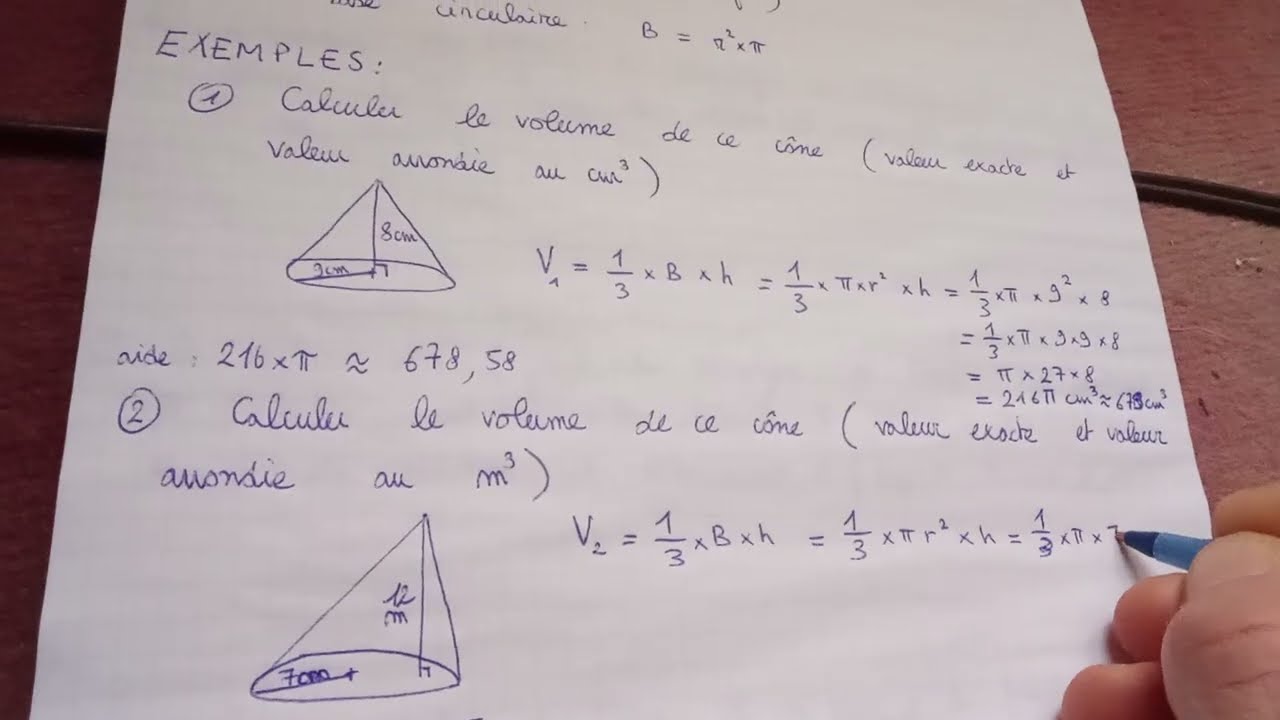 circulaire. B = r² × π
EXEMPLES :
① Calculer le volume de ce cône (valeur exacte et
valeur arrondie au cm³)
8cm
9cm
V₁ = 1/3 × B × h = 1/3 × π × r² × h = 1/3 × π × 9² × 8
= 1/3 × π × 9 × 9 × 8
= π × 27 × 8
= 216π cm³ ≈ 679cm³
aide : 216 × π ≈ 678,58
② Calculer le volume de ce cône (valeur exacte et valeur
arrondie au m³)
V₂ = 1/3 × B × h = 1/3 × π r² × h = 1/3 × π × 7
12
m